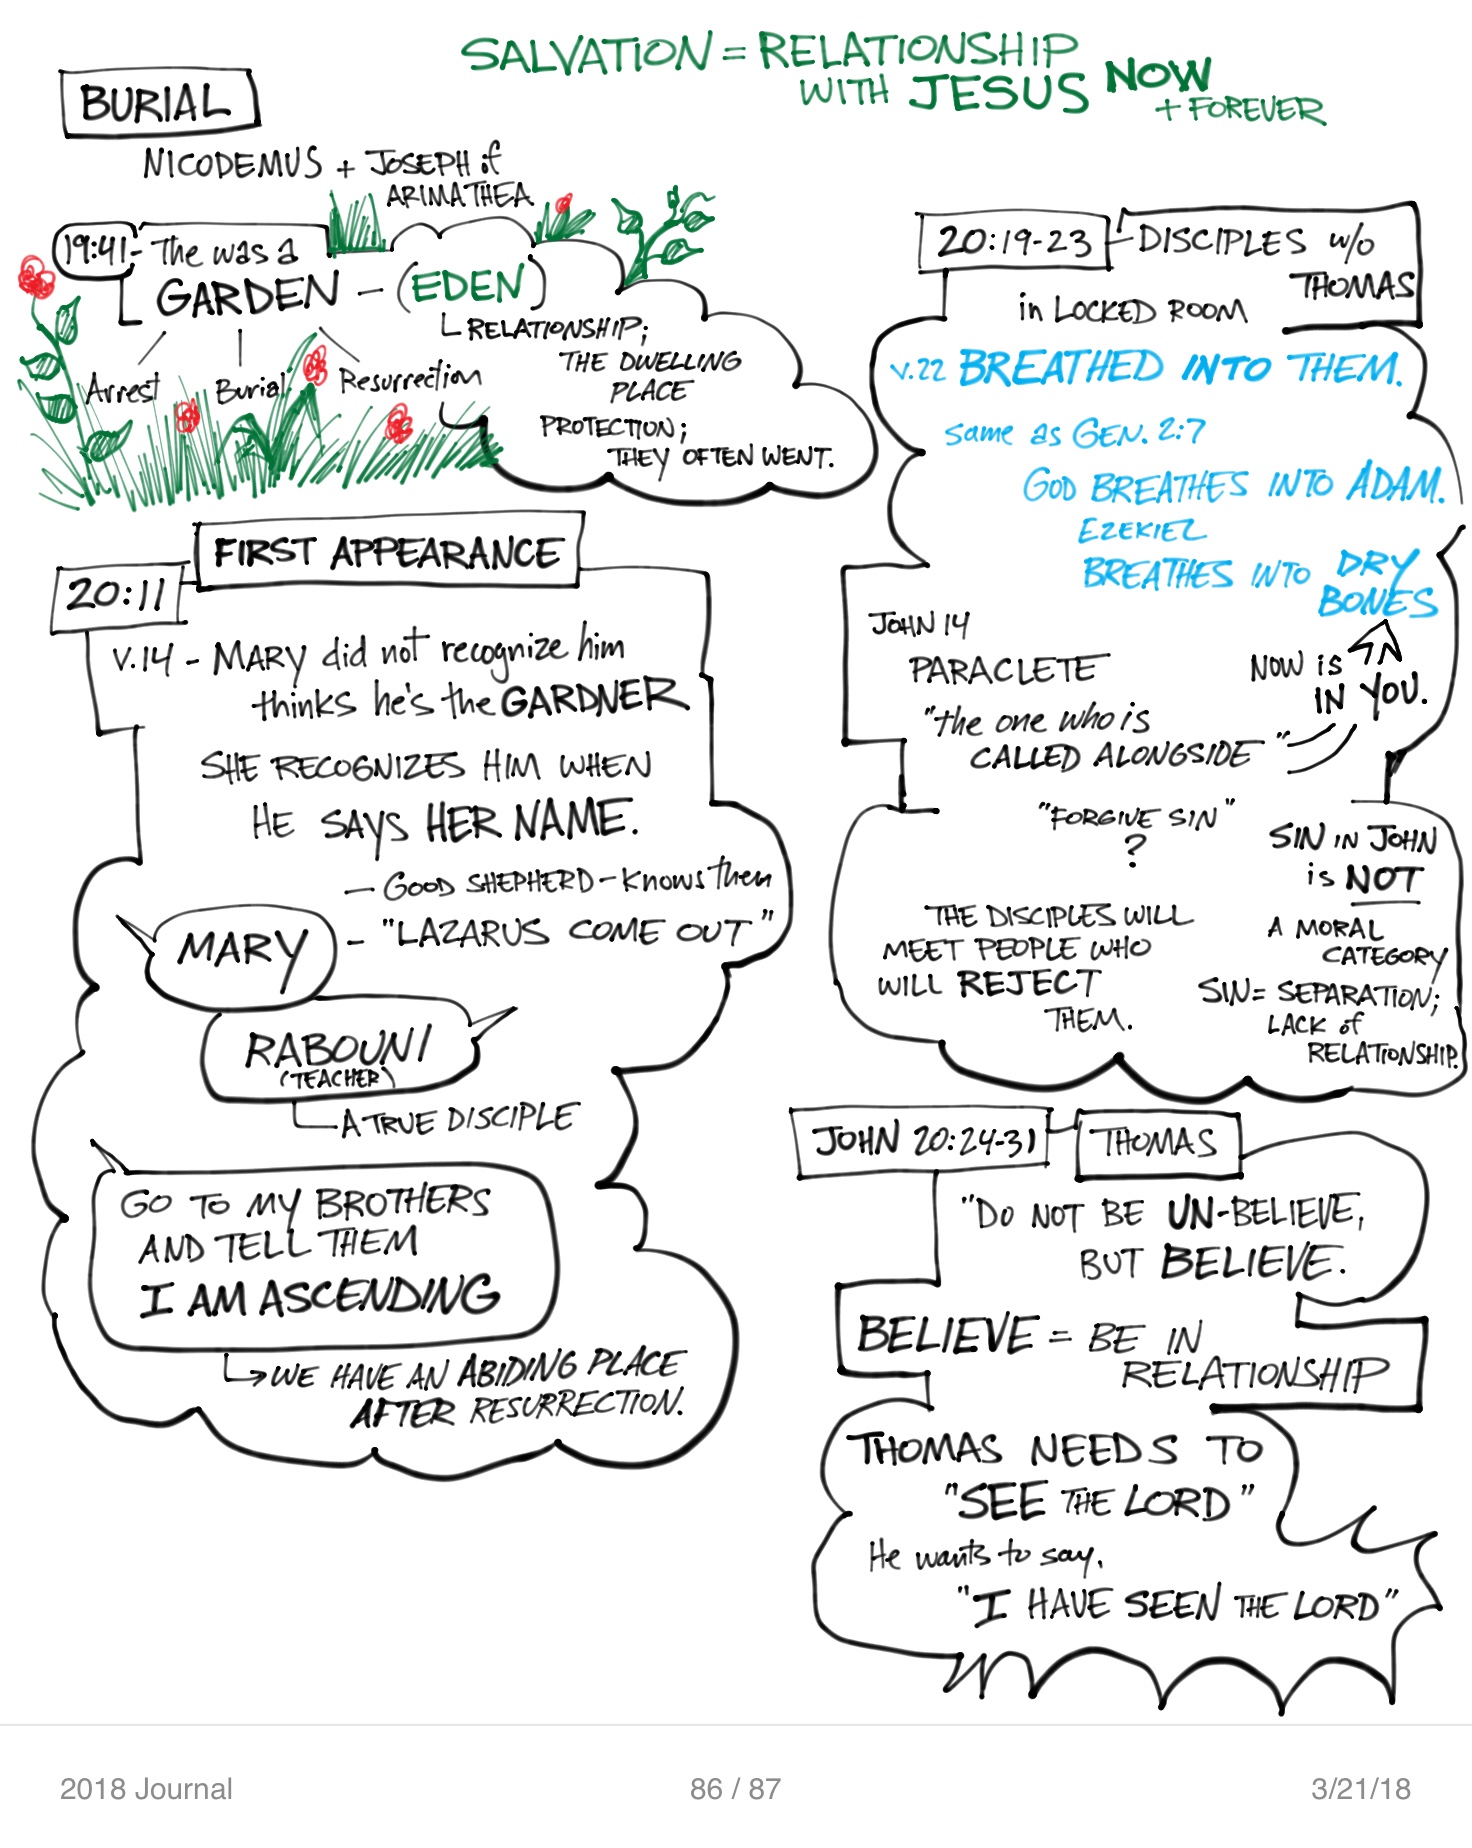 SALVATION = RELATIONSHIP
WITH JESUS NOW
+ FOREVER
BURIAL
NICODEMUS + JOSEPH of
ARIMATHEA
19:41 - The was a
GARDEN - (EDEN)
RELATIONSHIP;
THE DWELLING
PLACE
PROTECTION;
THEY OFTEN WENT.
Arrest Burial Resurrection
FIRST APPEARANCE
20:11
V.14 - MARY did not recognize him
thinks he's the GARDNER
SHE RECOGNIZES HIM WHEN
HE SAYS HER NAME.
- GOOD SHEPHERD - Knows them
MARY - "LAZARUS COME OUT"
RABOUNI
(TEACHER)
A TRUE DISCIPLE
GO TO MY BROTHERS
AND TELL THEM
I AM ASCENDING
WE HAVE AN ABIDING PLACE
AFTER RESURRECTION.
20:19-23 - DISCIPLES w/o
THOMAS
in LOCKED ROOM
V.22 BREATHED INTO THEM.
same as GEN. 2:7
GOD BREATHES INTO ADAM.
EZEKIEL
BREATHES INTO DRY
BONES
JOHN 14
PARACLETE
"the one who is
CALLED ALONGSIDE"
NOW is
IN YOU.
"FORGIVE SIN"
?
THE DISCIPLES WILL
MEET PEOPLE WHO
WILL REJECT
THEM.
SIN IN JOHN
is NOT
A MORAL
CATEGORY
SIN = SEPARATION;
LACK of
RELATIONSHIP.
JOHN 20:24-31 - THOMAS
"DO NOT BE UN-BELIEVE,
BUT BELIEVE.
BELIEVE = BE IN
RELATIONSHIP
THOMAS NEEDS TO
"SEE THE LORD"
He wants to say,
"I HAVE SEEN THE LORD"
2018 Journal 86 / 87 3/21/18